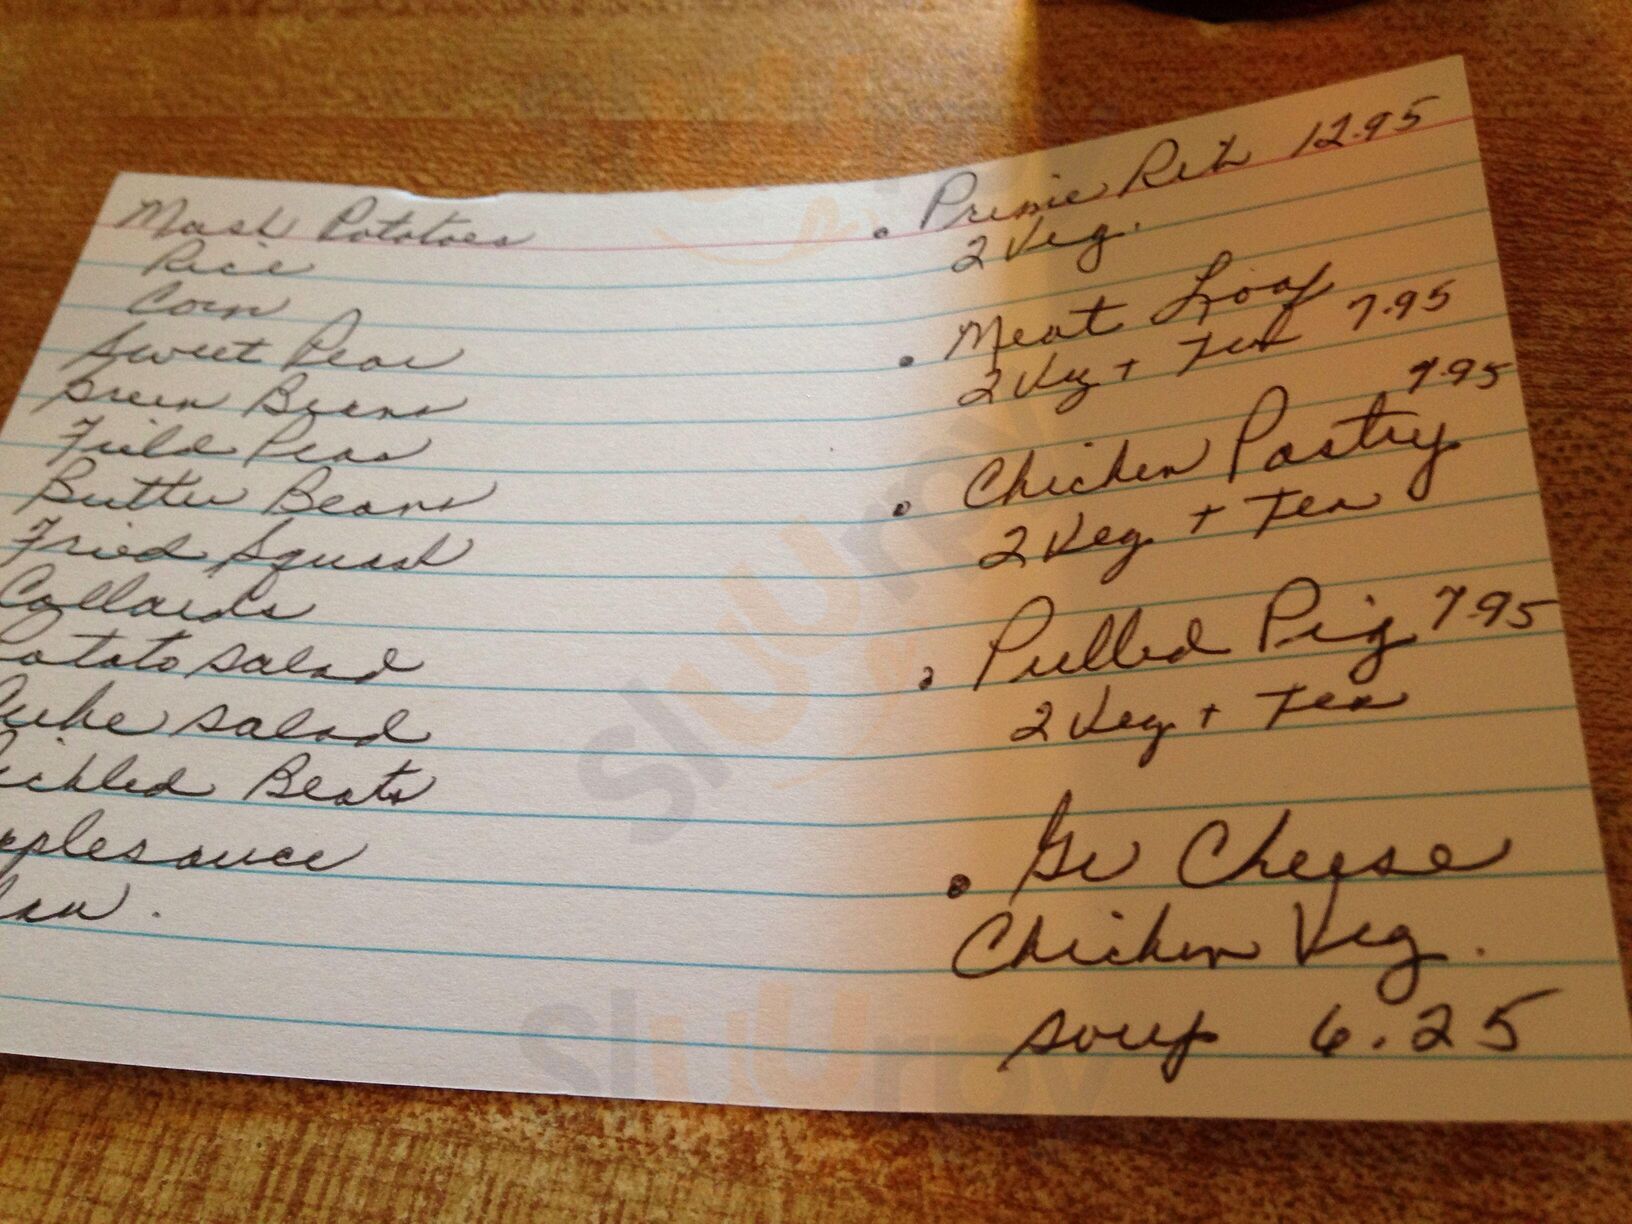 Mash Potatoes
Rice
Corn
Sweet Peas
Green Beans
Field Peas
Butter Beans
Fried Squash
Collards
Potato salad
Cuke salad
ickled Beats
pplesauce
law.
. Prime Rib 12.95
2 Veg.
. Meat Loaf
2 Veg + Tea 7.95
7.95
. Chicken Pastry
2 Veg + Tea
. Pulled Pig 7.95
2 Veg + Tea
. Gr Cheese
Chicken Veg.
soup 6.25
Sluurpy
Sluurpy